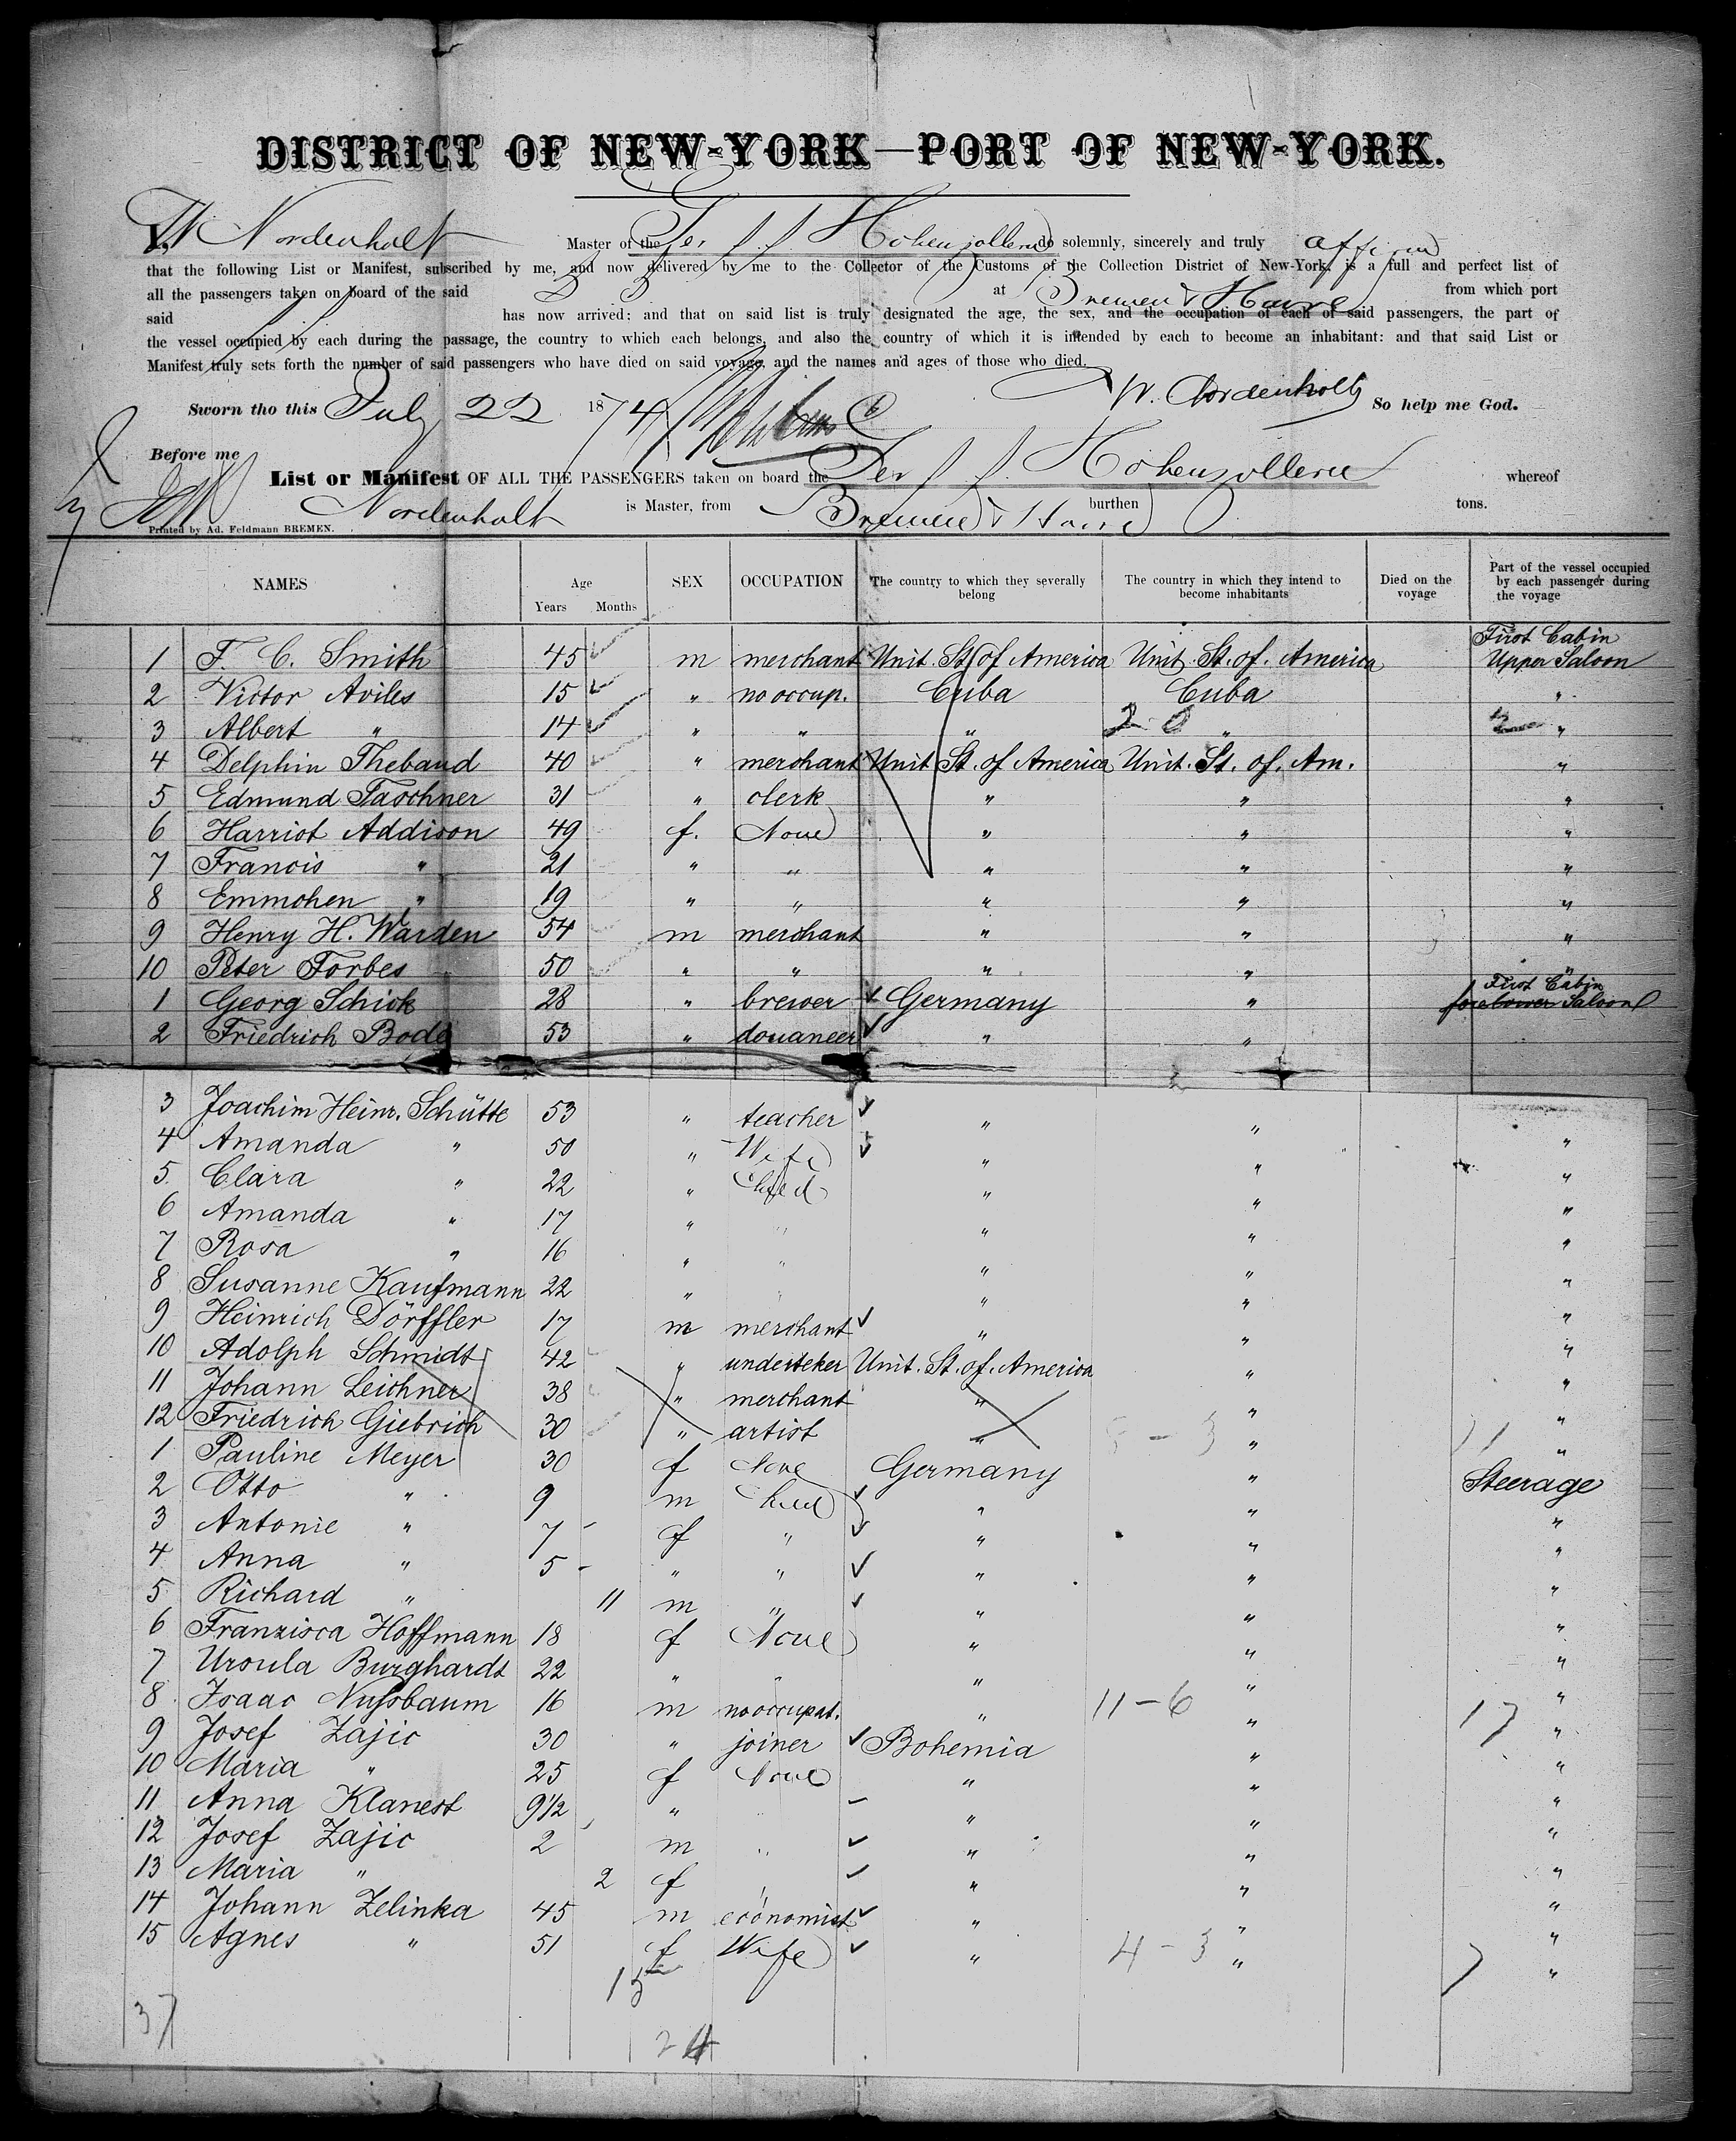 DISTRICT OF NEW-YORK—PORT OF NEW-YORK.
I, W Nordenholt Master of the Ger S. S. Hohenzollern do solemnly, sincerely and truly affirm
that the following List or Manifest, subscribed by me, and now delivered by me to the Collector of the Customs of the Collection District of New-York, is a full and perfect list of
all the passengers taken on board of the said at Bremen & Havre from which port
said S. S. has now arrived; and that on said list is truly designated the age, the sex, and the occupation of each of said passengers, the part of
the vessel occupied by each during the passage, the country to which each belongs, and also the country of which it is intended by each to become an inhabitant: and that said List or
Manifest truly sets forth the number of said passengers who have died on said voyage, and the names and ages of those who died.
W. Nordenholt
Sworn tho this July 22 1874 So help me God.
Before me
List or Manifest OF ALL THE PASSENGERS taken on board the Ger S. S. Hohenzollern whereof
Nordenholt is Master, from Bremen & Havre burthen tons.
Printed by Ad. Feldmann BREMEN.
NAMES Age Years Months SEX OCCUPATION The country to which they severally belong The country in which they intend to become inhabitants Died on the voyage Part of the vessel occupied by each passenger during the voyage
1 F. C. Smith 45 m merchant Unit. St. of America Unit. St. of. America First Cabin Upper Saloon
2 Victor Aviles 15 " no occup. Cuba Cuba "
3 Albert " 14 " " " 20 " "
4 Delphin Thebaud 40 " merchant Unit St. of America Unit. St. of. Am. "
5 Edmund Taschner 31 " clerk " " "
6 Harriot Addison 49 f. None " " "
7 Francis " 21 " " " " "
8 Emmchen " 19 " " " " "
9 Henry H. Warden 54 m merchant " " "
10 Peter Forbes 50 " " " " "
1 Georg Schick 28 " brewer Germany " First Cabin Saloon
2 Friedrich Bode 53 " douaneer " "
3 Joachim Heinr. Schütte 53 " teacher " " "
4 Amanda " 50 " Wife " " "
5 Clara " 22 " Child " " "
6 Amanda " 17 " " " " "
7 Rosa " 16 " " " " "
8 Susanne Kaufmann 22 " " " " "
9 Heinrich Dörffler 17 m merchant " " "
10 Adolph Schmidt 42 " underteker Unit. St. of. America " "
11 Johann Leichner 38 " merchant " " "
12 Friedrich Giebrich 30 " artist " 5-3 " 11 "
1 Pauline Meyer 30 f None Germany " Steerage
2 Otto " 9 m Child " " "
3 Antonie " 7 f " " " "
4 Anna " 5 " " " " "
5 Richard " 11 m " " " "
6 Franzisca Hoffmann 18 f None " " "
7 Ursula Burghardt 22 " " " " "
8 Isaac Nußbaum 16 m no occupat. " 11-6 " 17 "
9 Josef Zajic 30 " joiner Bohemia " "
10 Maria " 25 f None " " "
11 Anna Klanest 9 1/2 " " " "
12 Josef Zajic 2 m " " " "
13 Maria " 2 f " " " "
14 Johann Zelinka 45 m economist " " "
15 Agnes " 51 f Wife " 4-3 " 7 "
15
37 24